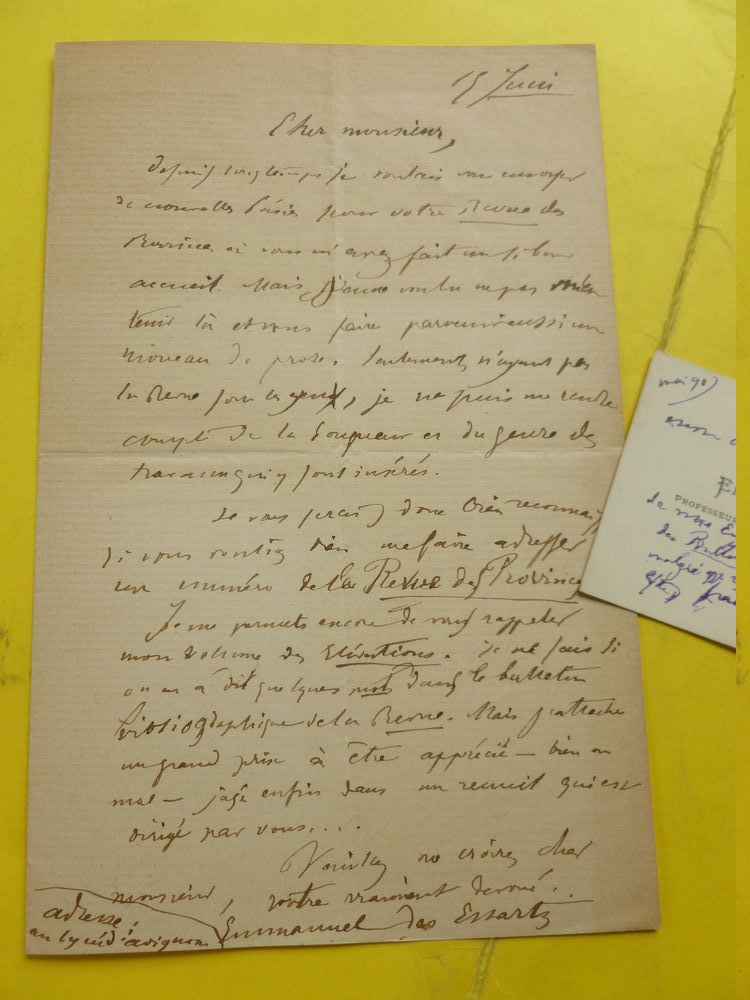 15 Juin
Cher monsieur,
depuis longtemps je voulais vous envoyer
de nouvelles Poésies pour votre Revue des
Provinces où vous m'avez fait un si bon
accueil. Mais j'aurais voulu ne pas m'en
tenir là et vous faire parvenir aussi un
morceau de prose. Seulement, n'ayant pas
la Revue sous les yeux, je ne puis me rendre
compte de la longueur et du genre des
travaux qui y sont insérés.
Je vous serais donc bien reconnaiss
si vous vouliez bien me faire adresser
un numéro de la Revue des Provinces
Je me permets encore de vous rappeler
mon volume des Elévations. Je ne sais si
on en a dit quelques mots dans le bulletin
bibliographique de la Revue. Mais j'attache
un grand prix à être apprécié – bien ou
mal – jugé enfin dans un recueil qui est
dirigé par vous....
Veuillez me croire, cher
monsieur, votre vraiment dévoué.
Emmanuel des Essarts
adresse:
au lycée d'avignon
mai 90
PROFESSEUR
de
du Bulle
malgré